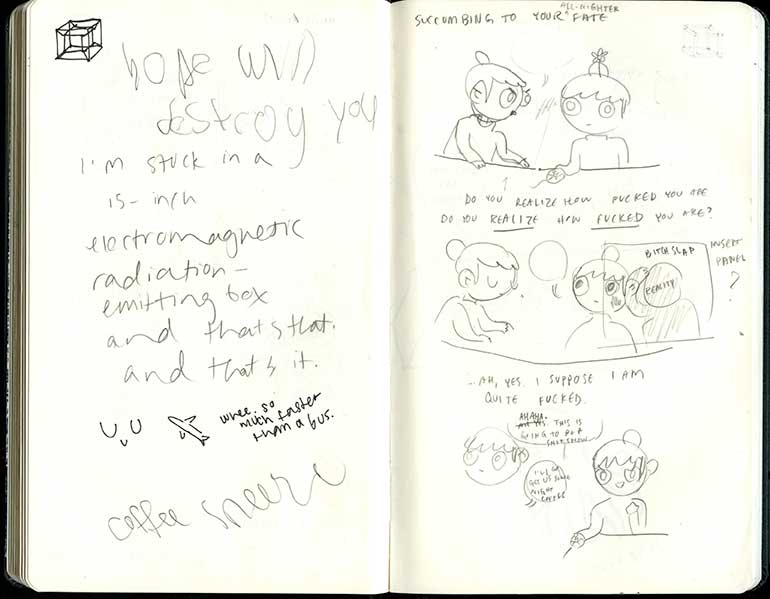 hope will
destroy you
I'm stuck in a
15-inch
electromagnetic
radiation-
emitting box
and that's that.
and that's it.
whee. so
much faster
than a bus.
coffee sneeze
SUCCUMBING TO YOUR ALL-NIGHTER FATE
DO YOU REALIZE HOW FUCKED YOU ARE
DO YOU REALIZE HOW FUCKED YOU ARE?
BITCHSLAP
REALITY
INSERT
PANEL
?
...AH, YES. I SUPPOSE I AM
QUITE FUCKED.
AHAHA.
THIS IS
GOING TO BE A
SHITSHOW
I'LL GO
GET US SOME
NIGHT
COFFEE